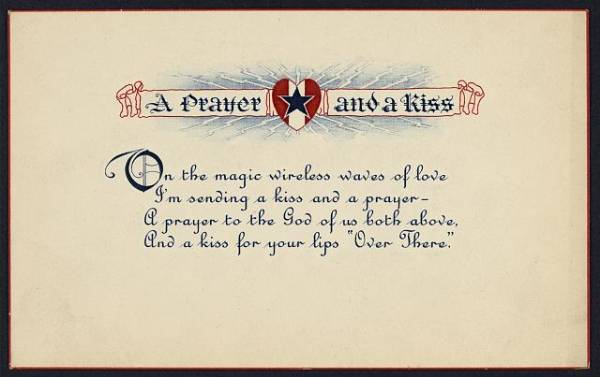 A Prayer and a Kiss
On the magic wireless waves of love
I'm sending a kiss and a prayer–
A prayer to the God of us both above,
And a kiss for your lips "Over There."